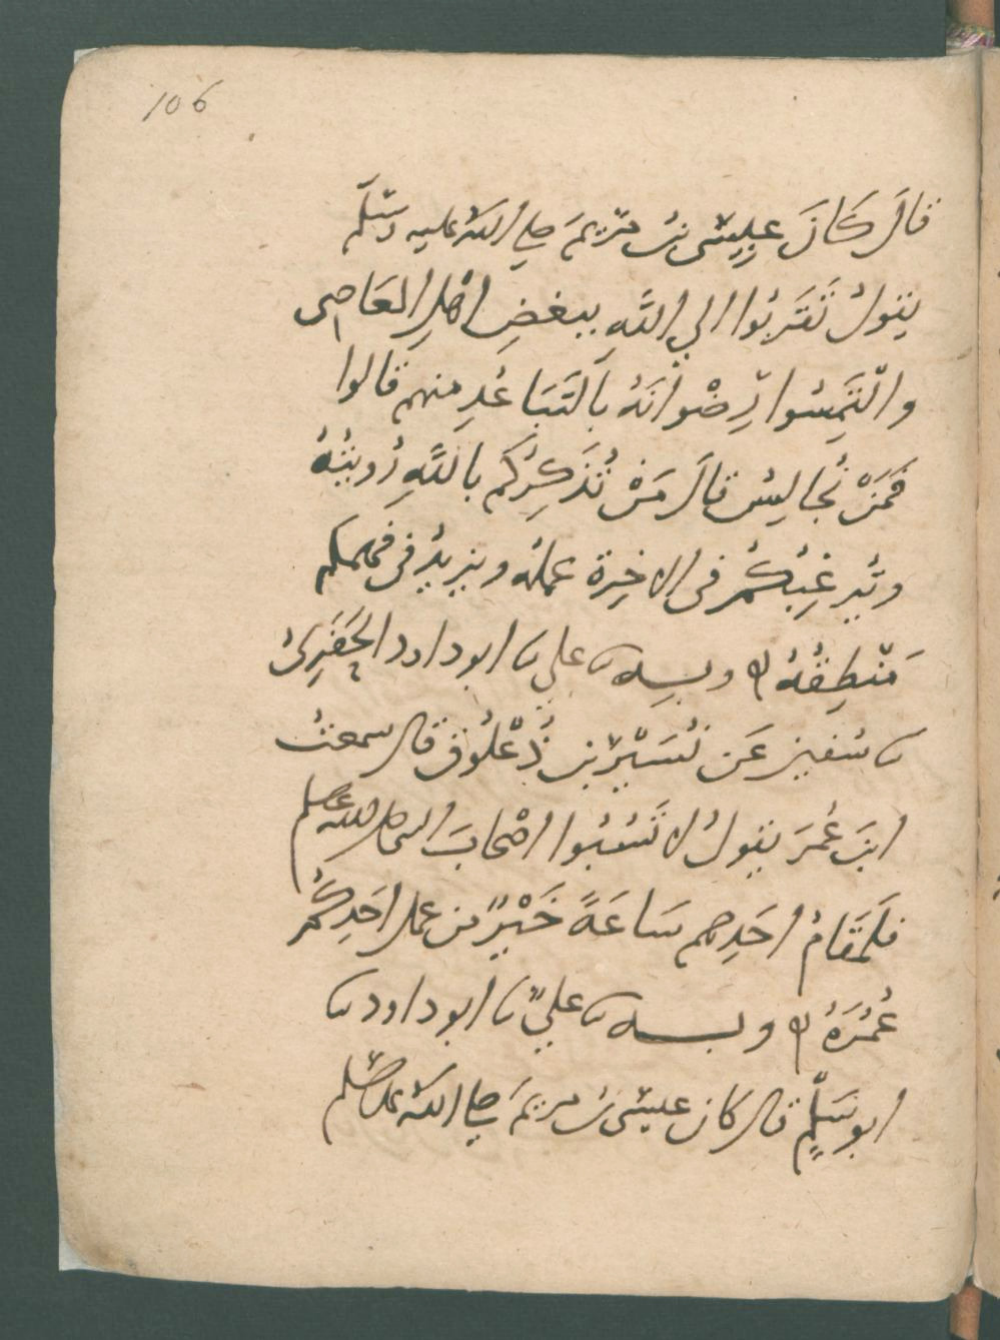 106
قَالَ كَانَ عِيسَى بنُ مَرْيَمَ صلى اللهُ عليه وسَلَّم
يقولُ تَقَرَّبُوا الي اللَّهِ ببغضِ اهْلِ المَعَاصِى
والْتَمِسُوا رِضْوَانَهُ بِالتَّبَاعُدِ منهم قَالوا
فَمَنْ نُجَالِسُ قالَ مَنْ تُذَكِّرُكُم بِاللَّهِ رُويَتُهُ
ويُرَغِّبُكُمْ في الاخِرَةِ عملُهُ ويَزِيدُ في فهمكم
مَنْطِقُهُ ه وبه ثنا علي ثنا ابو داود الحَفَرِىُّ
ثنا سُفين عَن نُسَيْرِ بنِ ذُعْلُوقٍ قال سمعتُ
ابنَ عُمَرَ يقولُ لا تَسُبُّوا اصْحَابَ النبى صلى الله عليه وسلم
فَلَمَقَامُ احَدِهِم سَاعَةً خَيْرٌ من عمل احَدِكُمْ
عُمُرَهُ ه وبه ثنا عليٌّ ثنا ابو داود ثنا
ابو سَلَمٍ قال كان عيسَى بنُ مريمَ صلى اللهُ عليه وسلم